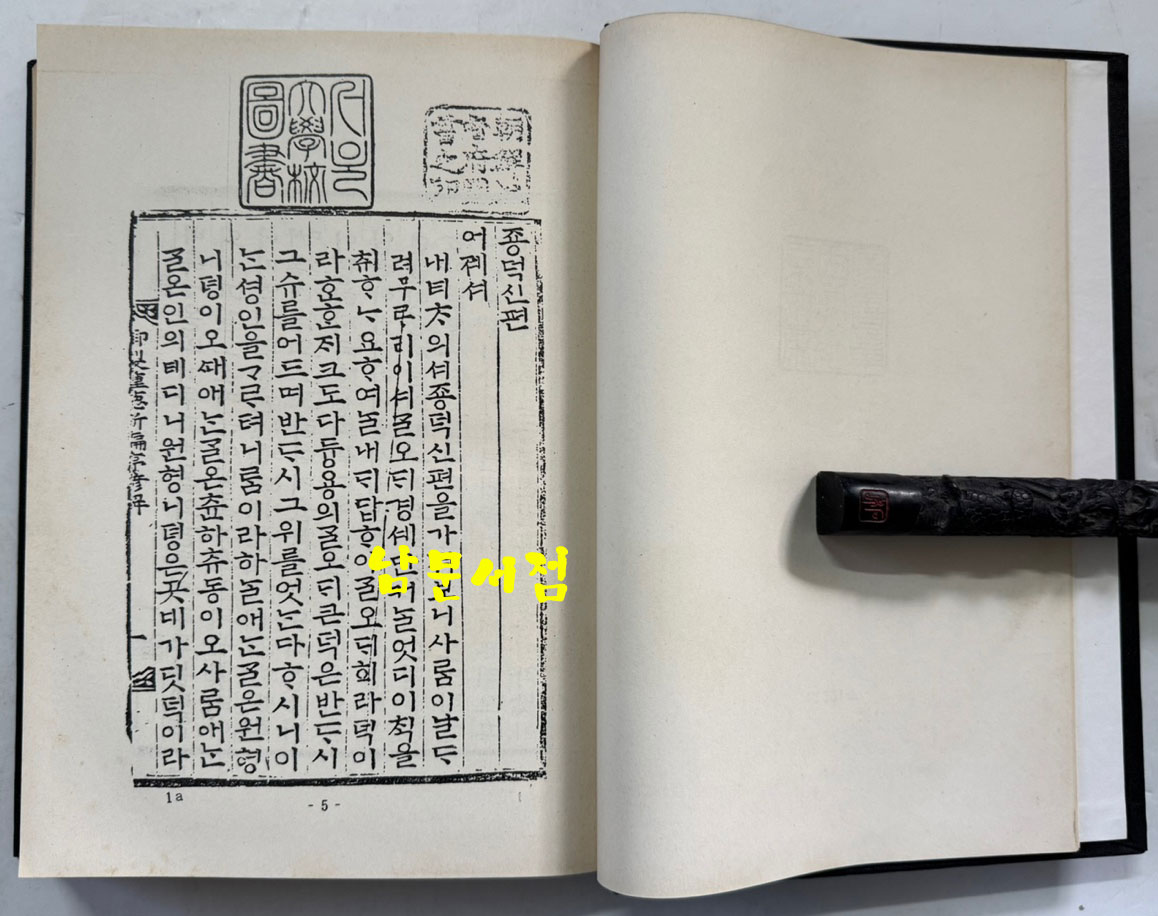 서울大學校圖書
죵덕신편
어졔셔
내 ᄎᆞ의셔죵덕신편을가 보니사ᄅᆞᆷ이날ᄃᆞ
려무ᄅᆞ리이셔ᄀᆞᆯ오ᄃᆡ경셰 ᄂᆞᆯ엇디이ᄎᆡᆨ을
ᄎᆔᄒᆞᄂᆞ뇨ᄒᆞ여ᄂᆞᆯ내ᄃᆡ답ᄒᆞ야ᄀᆞᆯ오ᄃᆡ희라덕이
라ᄒᆞ 지크도다듕용의ᄀᆞᆯ오ᄃᆡ큰덕은반ᄃᆞ시
그슈를어드며반ᄃᆞ시그위를엇ᄂᆞᆫ다ᄒᆞ시니이
ᄂᆞᆫ셩인을ᄀᆞᄅᆞ텨니ᄅᆞᆷ이라하ᄂᆞᆯ애ᄂᆞᆫᄀᆞᆯ온원형
니뎡이오ᄯᅢ애ᄂᆞᆫᄀᆞᆯ온츈하츄동이오사ᄅᆞᆷ애ᄂᆞᆫ
ᄀᆞᆯ온인의녜디니원형니뎡은곳네가딋덕이라
御製種德新編諺解
1a
- 5 -
남문서점